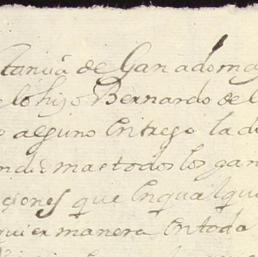 tanũa de Ganado ma
lo hijo Bernardo de l
alguno Entrego la d
mas todos los gan
ciones que Enqualqu
quier manera Entoda